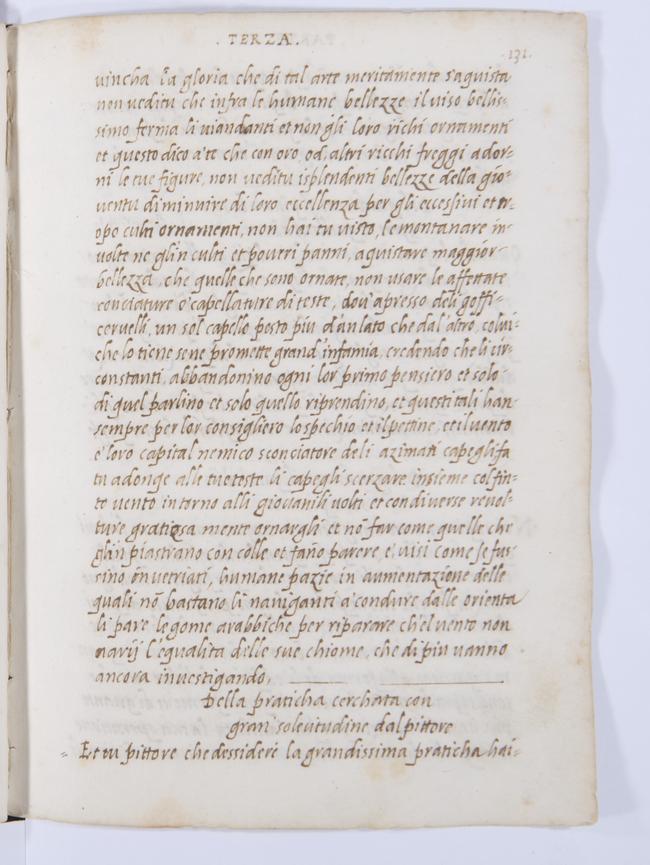 . TERZA .
131.
vincha la gloria che di tal arte meritamente s'aquista
non veditu che infra le humane bellezze il viso bellis-
simo ferma li viandanti et non gli loro richi ornamenti
et questo dico a te che con oro, od, altri ricchi freggi ador-
ni le tue figure, non veditu isplendenti bellezze della gio-
ventu diminuire di loro eccellenza per gli eccessivi et tr-
opo culti ornamenti, non hai tu visto, le montanare in-
volte ne gl'in culti et poveri panni, aquistare maggior-
bellezza, che quelle che sono ornate, non usare le affettate
conciature o' capellature di teste, dov'apresso deli goffi-
cervelli, un sol capello posto piu d'un lato che dal'altro, colui-
che lo tiene sene promette grand'infamia, credendo che li cir-
constanti, abbandonino ogni lor primo pensiero et solo-
di quel parlino et solo quello riprendino, et questi tali han-
sempre per lor consigliero lo spechio et il pettine, et il vento
e' loro capital nemico sconciatore deli azimati capegli fa
tu adonge alle tue teste li capegli scerzare insieme col fin-
to vento intorno alli giovanili volti et con diverse revol-
ture gratiosa mente ornargli et nō far come quelle che
gl'in piastrano con colle et fano parere e, visi come se fus-
sino invetriati, humane pazie in aumentazione delle
quali nō bastano li naviganti a' condure dalle orienta
li pare le gome arabbiche per riparare ch'el vento non
varij l'equalita delle sue chiome, che di piu vanno
ancora investigando,
Della praticha cerchata con
gran' solecitudine dal pittore
Et tu pittore che dessidere la grandissima praticha hai-